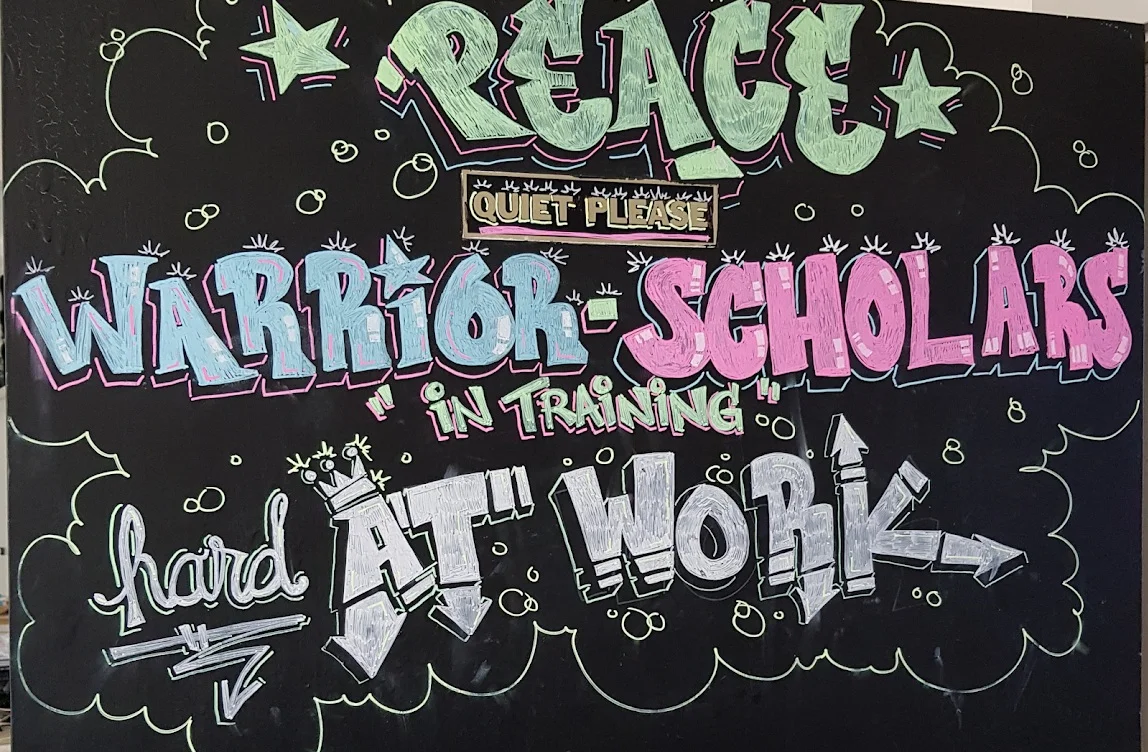 PEACE
QUIET PLEASE
WARRiOR-SCHOLARS
"iN TRAiNiNG"
hard AT" WORK